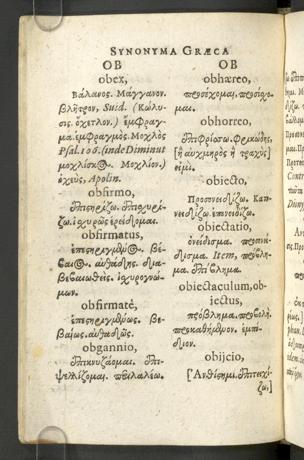 SYNONYMA GRÆCA
OB
obex,
Βάλανος. Μάγγανον.
βλῆτρον, Suid. (Κώλυ-
σις. ὀχετλον.) ἔμφραγ-
μα. ἐμφραγμός. Μοχλὸς
Psal. 106. (inde Diminut
μοχλίσκος. Μοχλίον.)
ὀχεὺς, Apolin.
obfirmo,
ἐπιστηρίζω. ἐπισχυρί-
ζω. ἰσχυρῶς ἐρείδομαι.
obfirmatus,
ἐπεστηριγμένος. βέ-
βαιος. αὐθάδης. δια-
βεβαιωθείς. ἰσχυρογνώ-
μων.
obfirmatè,
ἐπεστηριγμένως. βε-
βαίως. αὐθαδῶς.
obgannio,
ἐπικνυζάομαι. ἐπι-
ψελλίζομαι. περιλαλέω.
OB
obhæreo,
προσέχομαι. προσίσχο-
μαι.
obhorreo,
ἐπιφρίσσω. Φρικώδης,
[ἢ αὐχμηρὸς ἢ τραχὺς]
εἰμι.
obiecto,
Προσονειδίζω. Κατ-
νειδίζω. ἐπονειδίζω.
obiectatio,
ὀνείδισμα. προσονεί-
δισμα. Item, πρόβλη-
μα. ἐπίβλημα.
obiectaculum, ob-
iectus,
πρόβλημα. προβολή.
προκαθήμενον. ἐμπό-
διον.
obijcio,
[Ἀντίθημι. ἐπιτειχί-
ζω.]